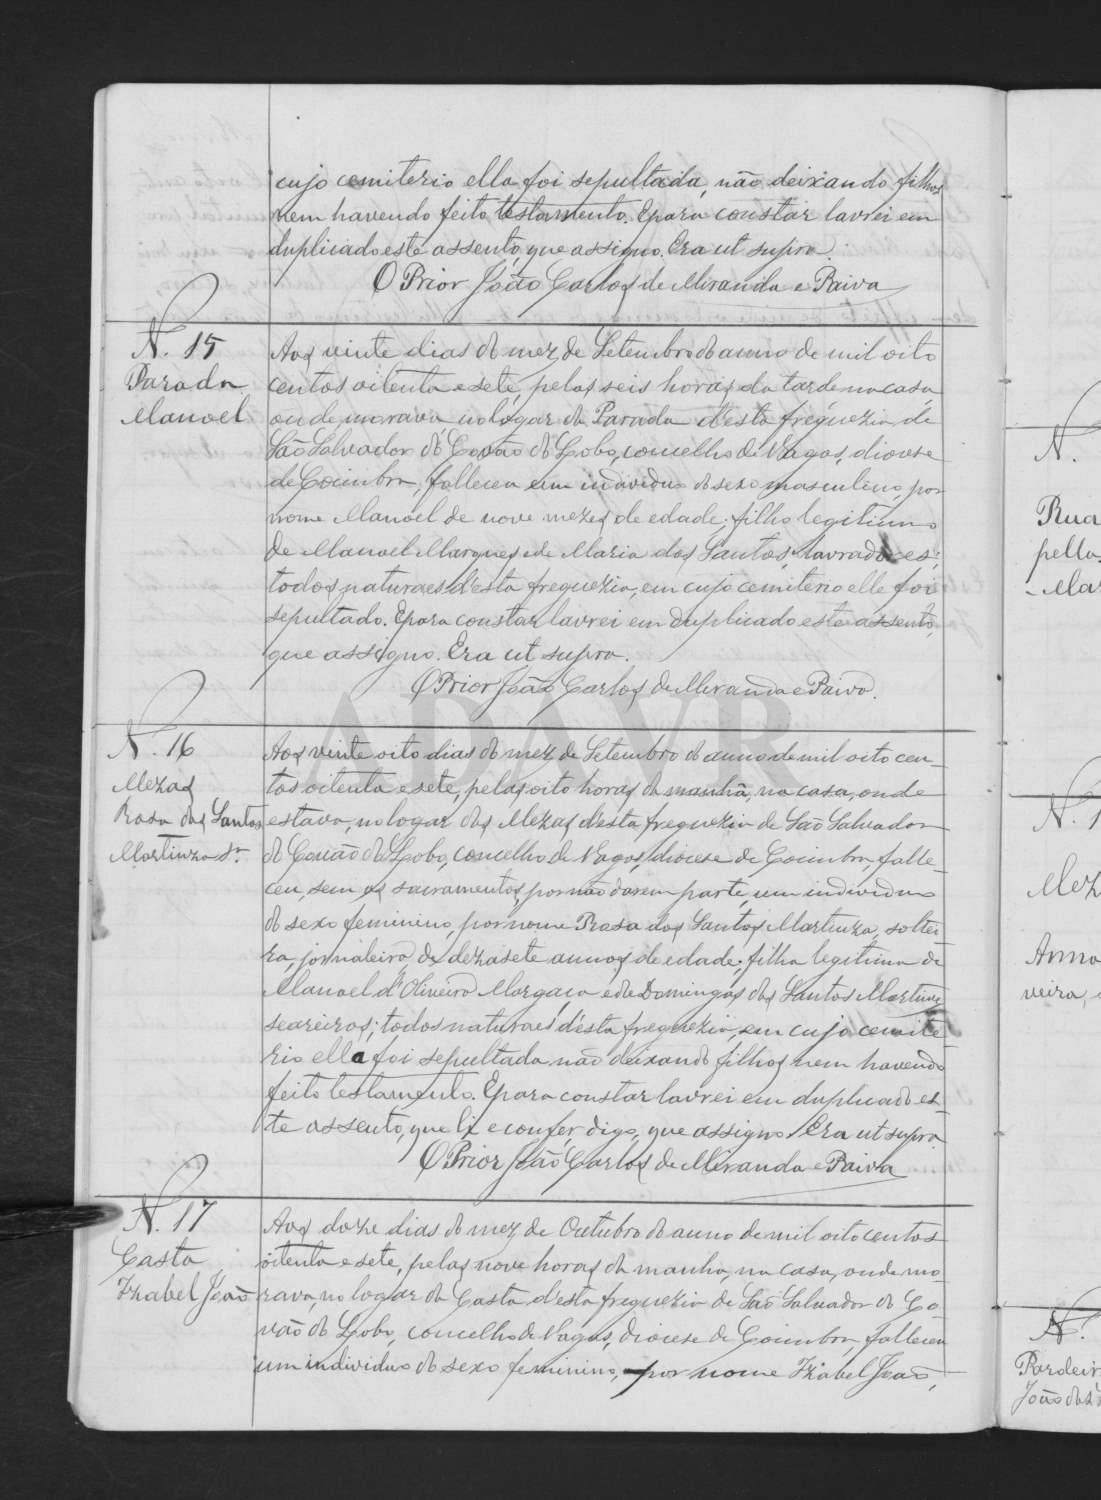 cujo cemiterio ella foi sepultada, não deixando filhos
nem havendo feito testamento. E para constar lavrei em
duplicado este assento, que assigno. Era ut supra.
O Prior João Carlos de Miranda e Paiva
N. 15
Parada
Manoel
Aos vinte dias do mez de Setembro do anno de mil oito
centos oitenta e sete, pelas seis horas da tarde na casa,
onde morava, no logar da Parada d'esta freguezia de
São Salvador do Covão do Lobo, concelho de Vagos, diocese
de Coimbra, falleceu um individuo do sexo masculino, por
nome Manoel de nove mezes de edade; filho legitimo
de Manoel Marques e de Maria dos Santos, lavradores;
todos naturaes d'esta freguezia, em cujo cemiterio elle foi
sepultado. E para constar lavrei em duplicado este assento,
que assigno. Era ut supra.
O Prior João Carlos de Miranda e Paiva.
N. 16
Mezas
Rosa dos Santos
Martinza Sra
Aos vinte oito dias do mez de Setembro do anno de mil oito cen-
tos oitenta e sete, pelas oito horas da manhã, na casa, onde
estava, no logar das Mezas d'esta freguezia de São Salvador
do Covão do Lobo, concelho de Vagos, diocese de Coimbra, falle-
ceu, sem os sacramentos, por não darem parte, um individuo
do sexo feminino, por nome Rosa dos Santos Martinza, soltei
ra, jornaleira, de dezasete annos de edade; filha legitima de
Manoel d'Oliveira Margaça e de Domingas dos Santos Martinza
seareiros; todos naturaes d'esta freguezia, em cujo cemite
rio ella foi sepultada não deixando filhos nem havendo
feito testamento. E para constar lavrei em duplicado es-
te assento, que li e conferi digo, que assigno. Era ut supra
O Prior João Carlos de Miranda e Paiva
N. 17
Gasta
Izabel João
Aos doze dias do mez de Outubro do anno de mil oito centos
oitenta e sete, pelas nove horas da manha, na casa, onde mo-
rava, no logar da Gasta d'esta freguezia de São Salvador do Co-
vão do Lobo, concelho de Vagos, diocese de Coimbra, falleceu
um individuo do sexo feminino, por nome Izabel João,
ADAVR
N.
Rua
pella
Mar
N. 1
Mez
Arma
veira,
N.
Pardeir
João dos